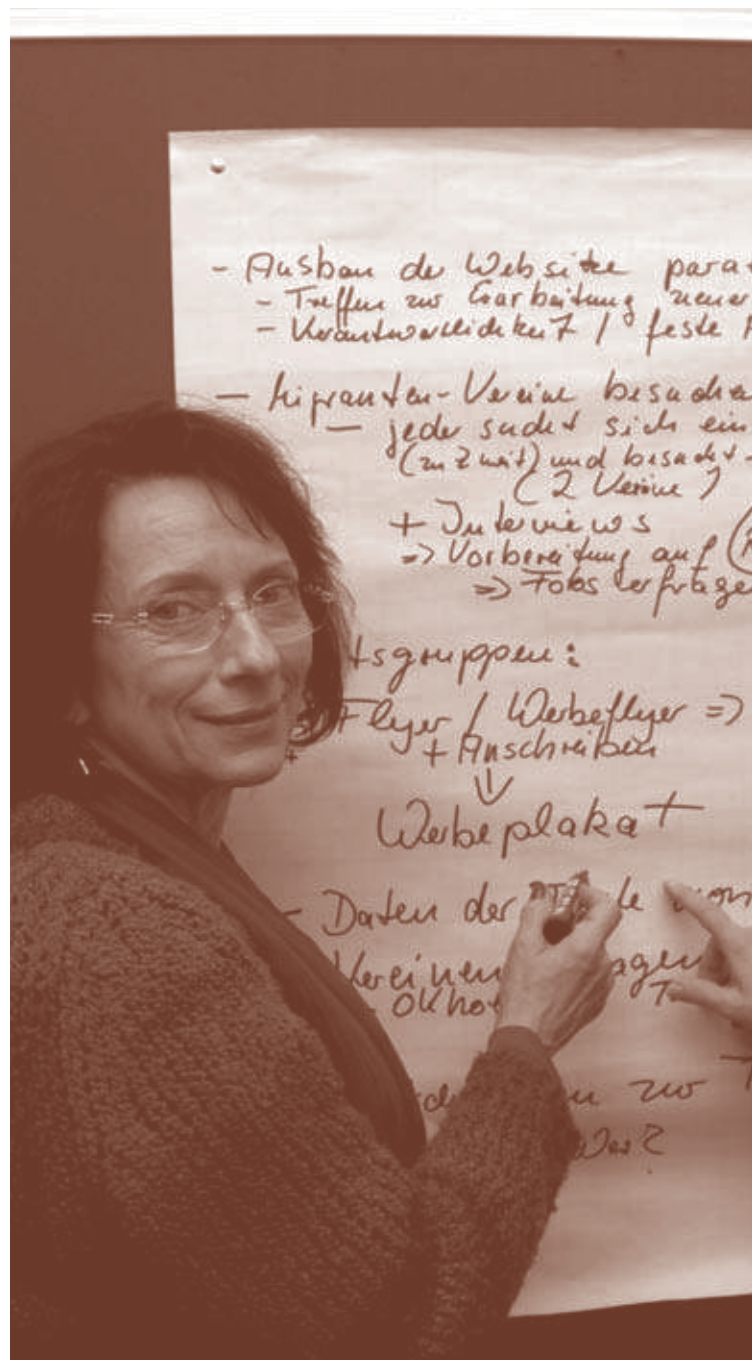 - Ausbau der Website para
- Treffen zur Erarbeitung neuer
- Verantwortlichkeit / feste
- Migranten-Vereine besuchen
- jeder suchet sich ein
(zu zweit) und besucht -
(2 Vereine)
+ Interviews
=> Vorbereitung auf
=> Fotos erfragen
tsgruppen:
Flyer / Werbeflyer =>
+ Anschreiben
Werbeplakat +
- Daten der
Vereinen
zur T
Wer?